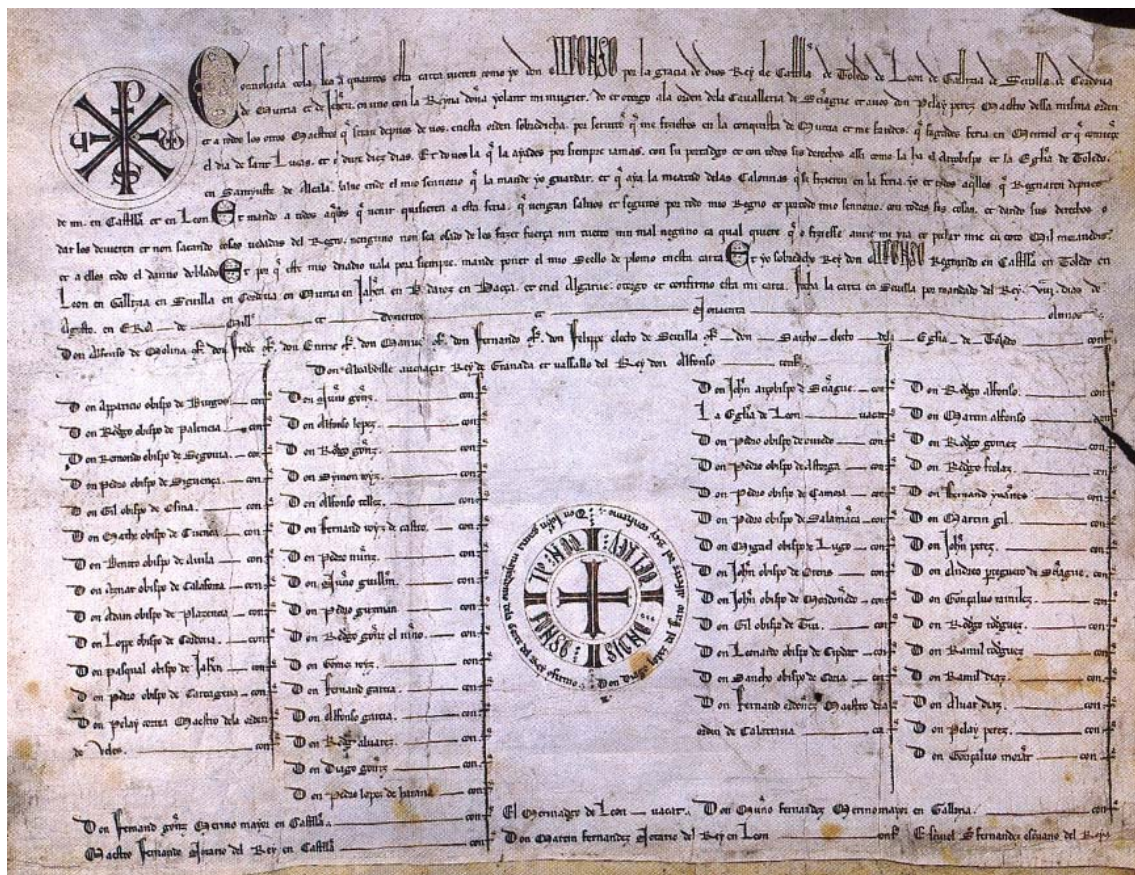 Connosçuda cosa sea a quantos esta carta uieren como yo don ALFONSO por la gracia de dios Rey de Castiella de Toledo de Leon de Gallizia de Seuilla de Cordoua
de Murcia et de Jahen, en uno con la Reyna dona yolant mi mugier, do et otorgo ala orden dela Caualleria de et a uos don Pelay perez Maestro dessa misma orden
et a todos los otros Maestros q seran depues de uos, enesta orden sobredicha, por seruicio q me fiziestes en la conquista de Murcia et me fazedes, q fagades feria en Montiel et q comience
el dia de sant Lucas, et dure diez dias. Et do uos la q la ayades por siempre iamas, con su portadgo et con todos sus derechos assi como la ha el Arçobispo et la Eglia de Toledo,
en Santyuste de Alcala, saluo ende el mio sennorio q la mande yo guardar, et q aya la meatad delas Calonnas q se fizieren en la feria, yo et todos aqllos q Regnaren depues
de mi, en Castiella et en Leon Et mando a todos aqllos q uenir quisieren a esta feria, q uengan saluos et seguros por todo mio Regno et por todo mio sennorio, con todas sus cosas, et dando sus derechos o
dar los deuieren et non sacando cosas uedadas del Regno, nenguno non sea osado de les fazer fuerça nin tuerto nin mal nenguno ca qual quiere q o fiziesse aurie mi yra et pechar mie en coto Mill
et a ellos todo el danno doblado Et por q este mio uala pora siempre, mande poner el mio Seello de plomo enesta carta Et yo sobredicho Rey don ALFONSO Regnando en Castiella en Toledo en
Leon en Gallizia en Seuilla en Cordoua en Murcia en Jahen, en Badaioz en Baeça, et enel Algarue, otorgo et confirmo esta mi carta. fecha la carta en Seuilla por mandado del Rey, dias de
Agosto, en Era de Mill et Dozientos et Nouaenta annos
Don Alfonso de Molina cf. don Fredic cf. don Enrric cf. don Manuel cf. don Fernando cf. don Felippe electo de Seuilla cf. don Sancho electo dela Eglia de Toledo conf
Don Aboabdille Rey de Granada et uassallo del Rey don Alfonso conf
Don Apparicio obispo de Burgos conf
Don Rodgo obispo de Palencia conf
Don Remondo obispo de Segouia conf
Don Pedro obispo de Siguença conf
Don Gil obispo de Osma conf
Don Mathe obispo de Cuenca conf
Don Benito obispo de Auila conf
Don Aznar obispo de Calahorra conf
Don Adam obispo de Plazencia conf
Don Loppe obispo de Cordoua conf
Don Pasqual obispo de Jahen conf
Don Pedro obispo de Cartagena conf
Don Pelay correa Maestro dela orden
de Ucles conf
Don Nuno gonz conf
Don Alfonso lopez conf
Don Rodgo gonz conf
Don Symon royz conf
Don Alfonso tellez conf
Don Fernand royz de castro conf
Don Pedro nunz conf
Don Nuno guillm conf
Don Pedro guzman conf
Don Rodgo gonz el ninno conf
Don Gomez royz conf
Don Fernand garcia conf
Don Alfonso garcia conf
Don Rodgo aluarez conf
Don Diago gomz conf
Don Pedro lopez de harana conf
SIGNO DEL REY DON ALFONSO
Don Diago lopez de faro alferez del Rey confirma
Don Johan garcia mayordomo dela corte del Rey confirma
Don Johan arçobispo de conf
La Eglia de Leon uacat
Don Pedro obispo de ouiedo conf
Don Pedro obispo de Astorga conf
Don Pedro obispo de Çamora conf
Don Pedro obispo de Salamanca conf
Don Migael obispo de Lugo conf
Don Johan obispo de Orens conf
Don Johan obispo de Mendonnedo conf
Don Gil obispo de Tuy conf
Don Leonardo obispo de Cipdat conf
Don Sancho obispo de Coria conf
Don Fernand ordonez Maestro dela
orden de Calatraua
Don Rodgo alfonso conf
Don Martin alfonso conf
Don Rodgo gomez conf
Don Rodgo frolaz conf
Don Fernand yuannes conf
Don Martin gil conf
Don Johan perez conf
Don Andreo conf
Don Gonçaluo ramirez conf
Don Rodgo rodguez conf
Don Ramir rodguez conf
Don Ramir diaz conf
Don Aluar diaz conf
Don Pelay perez conf
Don Gonçaluo conf
Don Fernand gonz Merino mayor en Castiella conf
Maestro Fernando Notario del Rey en Castiella conf
El Merinadgo de Leon uacat. Don Muno fernandez Merino mayor en Gallizia conf
Don Martin fernandez Notario del Rey en Leon conf